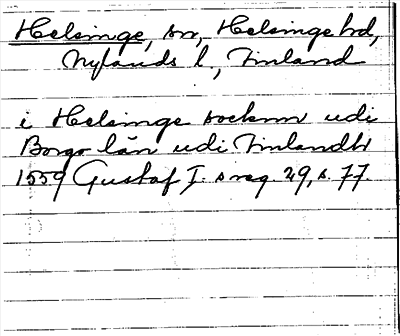 Helsinge, sn, Helsinge hd,
Nylands l., Finland
i Helsinge socknn udi
Borgo län udi Finlandh
1559 Gustaf I:s reg. 29, s. 77.